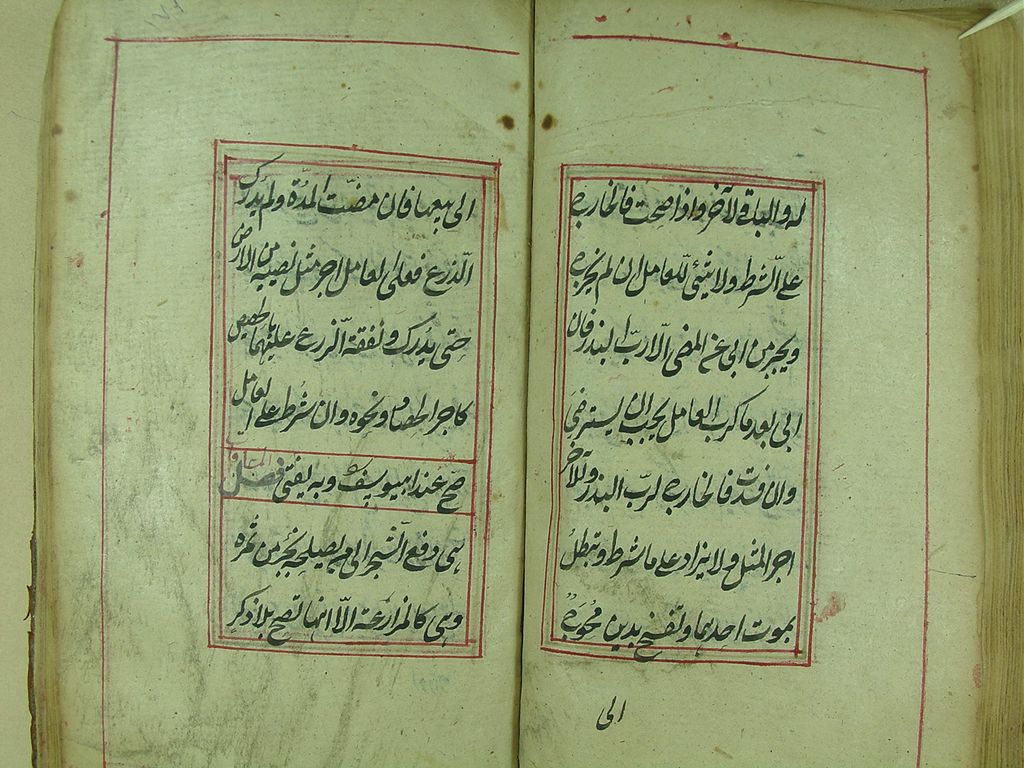 له والباقي لآخر واذا صحت فالخارج
على الشرط ولا شيئ للعامل ان لم يخرج
ويجبر من ابى عن المضى الا رب البذر فان
ابى بعد ما كرب العامل يجب ان يسترضى
وان فسدت فالخارج لرب البذر وللآخر
اجر المثل ولا يزاد على ما شرط وتبطل
بموت احدهما وتفسخ بدين محوج
الى
الى بيعها فان مضت المدة ولم يدرك
الزرع فعلى العامل اجر مثل نصيبه من الارض
حتى يدرك ونفقة الزرع عليهما بالحصص
كاجر الحصاد ونحوه وان شرط على العامل
صح عند ابيوسف وبه يفتى فصل المساقاة
هى دفع الشجر الى من يصلحه بجزء من ثمره
وهى كالمزارعة الا انها تصح بلا ذكر